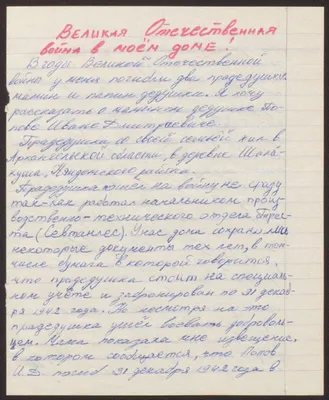 Великая Отечественная
война в моём доме.
В годы Великой Отечественной
войны у меня погибли два прадедушки:
мамин и папин дедушки. Я хочу
рассказать о мамином дедушке По-
пове Иване Дмитриевиче.
Прадедушка со своей семьёй жил в
Архангельской области, в деревне Шала-
куша, Няндомского района.
Прадедушка пошёл на войну не сразу
так-как работал начальником произ-
водственно-технического отдела Трес-
та (Севтранлес). У нас дома сохранились
некоторые документы тех лет, в том
числе бумага в которой говорится,
что прадедушка стоит на специаль-
ном учёте и забронирован по 31 декаб-
ря 1942 года. Не посмотря на это
прадедушка ушёл воевать доброволь-
цем. Мама показала мне извещение,
в котором сообщается, что Попов
И.Д. погиб 31 декабря 1942 года в